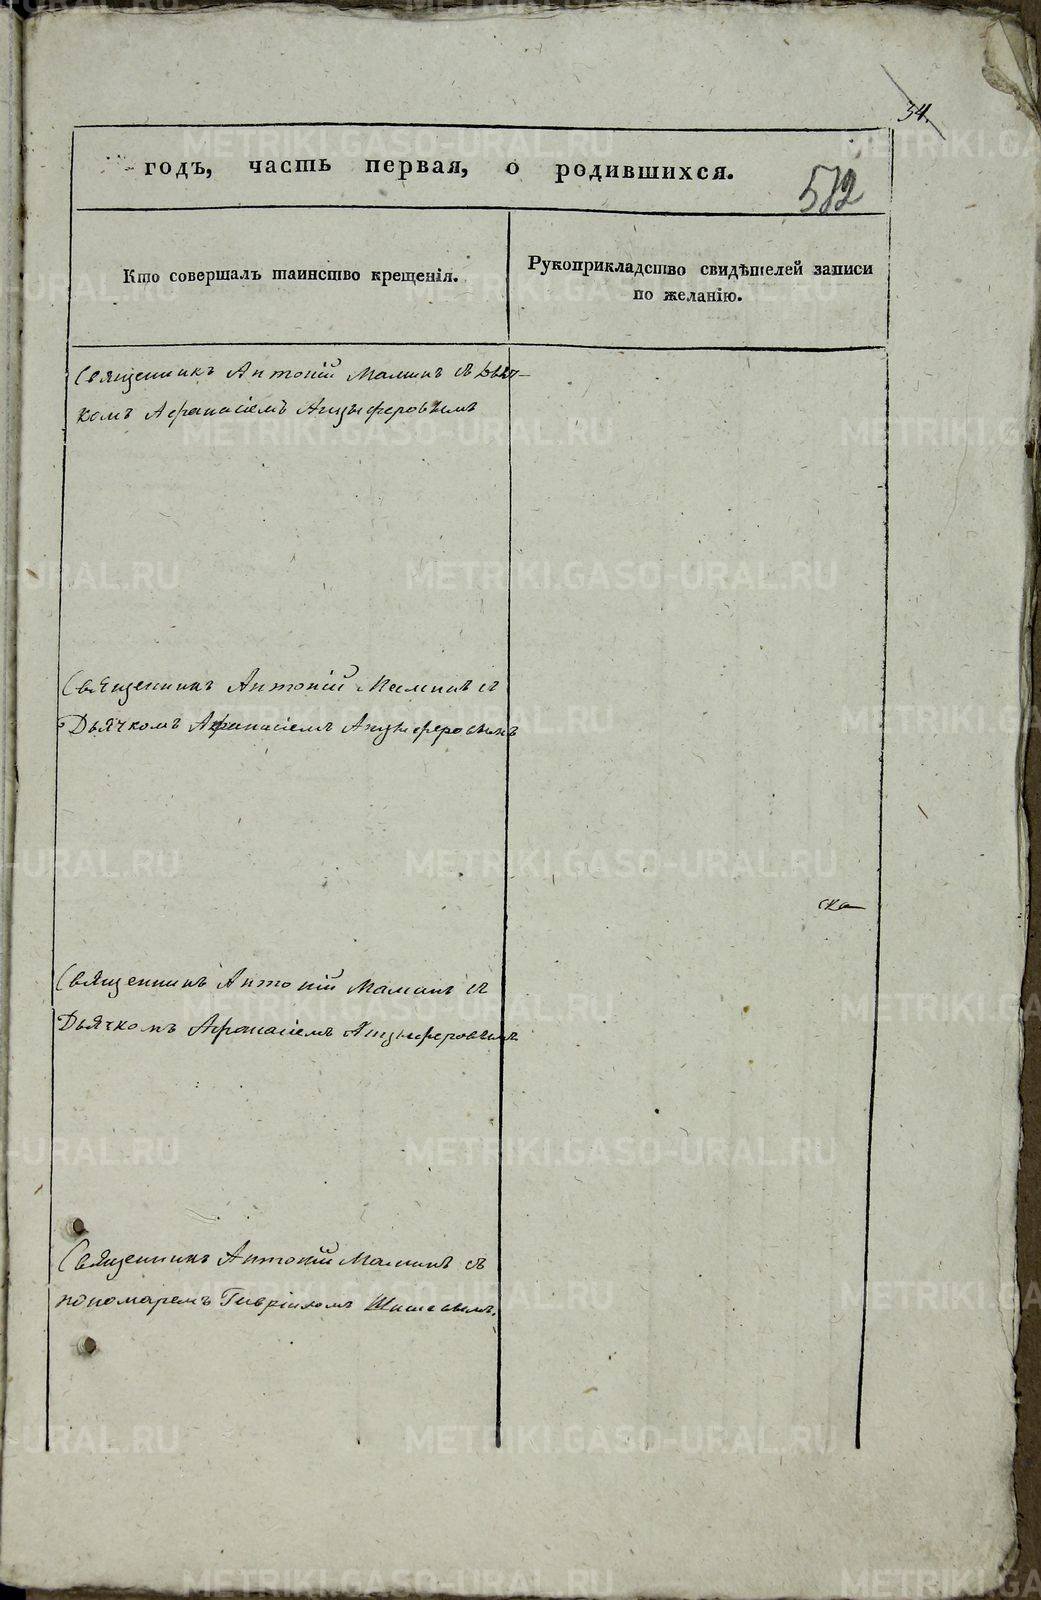 34.
годъ, часть первая, о родившихся.
582
Кто совершалъ таинство крещенія.
Рукоприкладство свидѣтелей записи
по желанію.
Священникъ Антоній Маминъ съ Дьяч-
комъ Афанасіемъ Анцыферовымъ
Священникъ Антоній Маминъ съ
Дьячкомъ Афанасіемъ Анцыферовымъ
ска
Священникъ Антоній Маминъ съ
Дьячкомъ Афанасіемъ Анцыферовымъ
Священникъ Антоній Маминъ съ
пономаремъ
METRIKI.GASO-URAL.RU